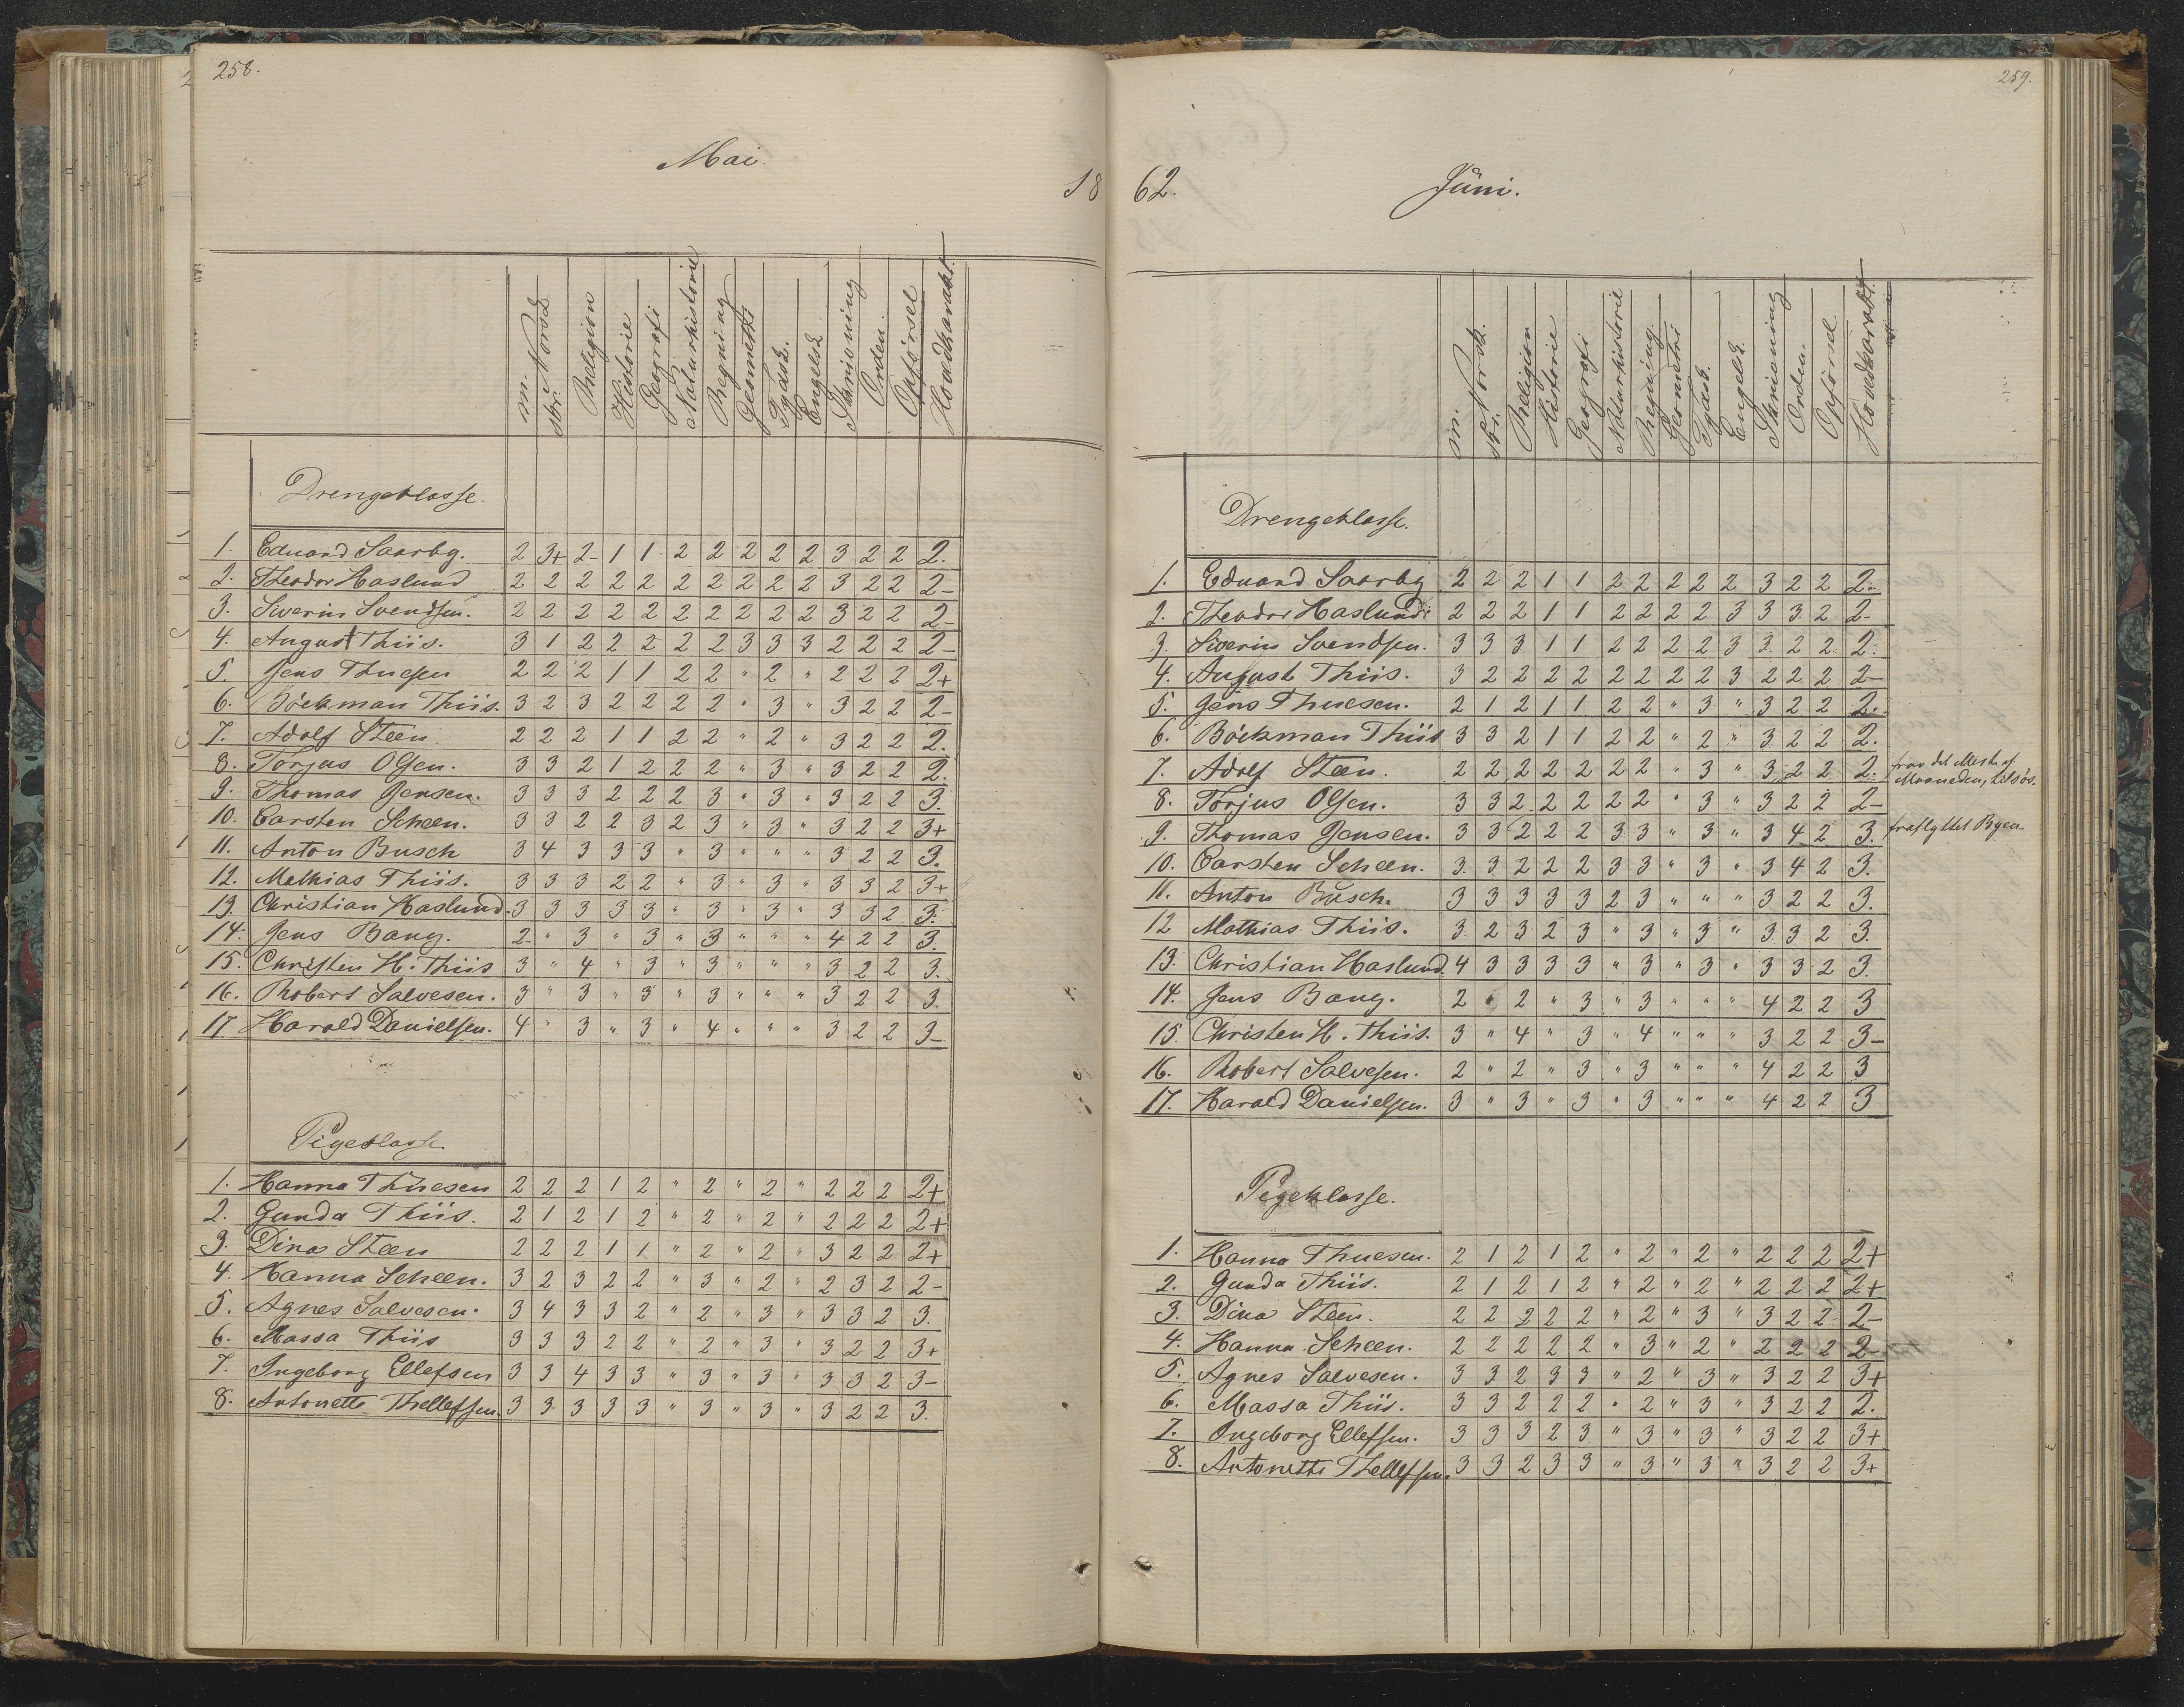 258.
Mai.
18
m. Norsk
skr.
Religion
Historie
Geografi
Naturhistorie
Regning
Geometri
Tydsk.
Engelsk
Skrivning
Orden.
Opførsel
Hovedkarakt.
Drengeklasse.
1. Eduard Saarbg. 2 3+ 2- 1 1 2 2 2 2 2 3 2 2 2.
2. Theodor Haslund 2 2 2 2 2 2 2 2 2 2 3 2 2 2-
3. Siverin Svendsen. 2 2 2 2 2 2 2 2 2 2 3 2 2 2-
4. August Thiis. 3 1 2 2 2 2 2 3 3 3 2 2 2 2-
5. Jens Thuesen 2 2 2 1 1 2 2 " 2 " 2 2 2 2+
6. Böckman Thiis. 3 2 3 2 2 2 2 " 3 " 3 2 2 2-
7. Adolf Steen. 2 2 2 1 1 2 2 " 2 " 3 2 2 2.
8. Torjus Olsen. 3 3 2 1 2 2 2 " 3 " 3 2 2 2.
9. Thomas Jensen. 3 3 3 2 2 2 3 " 3 " 3 2 2 3.
10. Carsten Scheen. 3 3 2 2 3 2 3 " 3 " 3 2 2 3+
11. Anton Busch 3 4 3 3 3 " 3 " " " 3 2 2 3.
12. Mathias Thiis. 3 3 3 2 2 " 3 " 3 " 3 3 2 3+
13. Christian Haslund. 3 3 3 3 3 " 3 " 3 " 3 3 2 3.
14. Jens Bang. 2- " 3 " 3 " 3 " " " 4 2 2 3.
15. Christen H. Thiis 3 " 4 " 3 " 3 " " " 3 2 2 3.
16. Robert Salvesen. 3 " 3 " 3 " 3 " " " 3 2 2 3.
17 Harald Danielsen. 4 " 3 " 3 " 4 " " " 3 2 2 3-
Pigeklasse
1. Hanna Thuesen 2 2 2 1 2 " 2 " 2 " 2 2 2 2+
2. Gunda Thiis. 2 1 2 1 2 " 2 " 2 " 2 2 2 2+
3. Dina Steen 2 2 2 1 1 " 2 " 2 " 3 2 2 2+
4. Hanna Scheen. 3 2 3 2 2 " 3 " 2 " 2 3 2 2-
5. Agnes Salvesen. 3 4 3 3 2 " 2 " 3 " 3 3 2 3.
6. Massa Thiis 3 3 3 2 2 " 2 " 3 " 3 2 2 3+
7. Ingeborg Ellefsen 3 3 4 3 3 " 3 " 3 " 3 3 2 3-
8. Antonette Thellefsen. 3 3 3 3 3 " 3 " 3 " 3 2 2 3.
259.
62.
Juni.
m. Norsk.
skr.
Religion
Historie
Geografi
Naturhistorie
Regning
Geometri
Tydsk.
Engelsk.
Skrivning
Orden.
Opførsel
Hovedkarakt.
Drengeklasse.
1. Eduard Saarbg 2 2 2 1 1 2 2 2 2 2 3 2 2 2-
2. Theodor Haslund 2 2 2 1 1 2 2 2 2 3 3 3 2 2-
3. Siverin Svendsen. 3 3 3 1 1 2 2 2 2 3 3 2 2 2.
4. August Thiis. 3 2 2 2 2 2 2 2 2 3 2 2 2 2-
5. Jens Thuesen. 2 1 2 1 1 2 2 " 3 " 3 2 2 2.
6. Böckman Thiis 3 3 2 1 1 2 2 " 2 " 3 2 2 2.
7. Adolf Steen. 2 2 2 2 2 2 2 " 3 " 3 2 2 2. frav. det Meste af
Maaneden, tilsøs.
8. Torjus Olsen. 3 3 2 2 2 2 2 " 3 " 3 2 2 2-
9. Thomas Jensen. 3 3 2 2 2 3 3 " 3 " 3 4 2 3. fraflyttet Byen.
10. Carsten Scheen. 3 3 2 2 2 3 3 " 3 " 3 4 2 3.
11. Anton Busch. 3 3 3 3 3 2 3 " " " 3 2 2 3.
12 Mathias Thiis. 3 2 3 2 3 " 3 " 3 " 3 3 2 3.
13. Christian Haslund. 4 3 3 3 3 " 3 " 3 " 3 3 2 3.
14. Jens Bang. 2 " 2 " 3 " 3 " " " 4 2 2 3
15. Christen H. Thiis. 3 " 4 " 3 " 4 " " " 3 2 2 3-
16. Robert Salvesen. 2 " 2 " 3 " 3 " " " 4 2 2 3
17. Harald Danielsen. 3 " 3 " 3 " 3 " " " 4 2 2 3
Pigeklasse.
1. Hanna Thuesen. 2 1 2 1 2 " 2 " 2 " 2 2 2 2+
2. Gunda Thiis. 2 1 2 1 2 " 2 " 2 " 2 2 2 2+
3. Dina Steen. 2 2 2 2 2 " 2 " 3 " 3 2 2 2-
4. Hanna Scheen. 2 2 2 2 2 " 3 " 2 " 2 2 2 2-
5. Agnes Salvesen. 3 3 2 3 3 " 2 " 3 " 3 2 2 3+
6. Massa Thiis. 3 3 2 2 2 " 2 " 3 " 3 2 2 2.
7. Ingeborg Ellefsen. 3 3 3 2 3 " 3 " 3 " 3 2 2 3+
8. Antonette Thellefsen. 3 3 2 3 3 " 3 " 3 " 3 2 2 3+